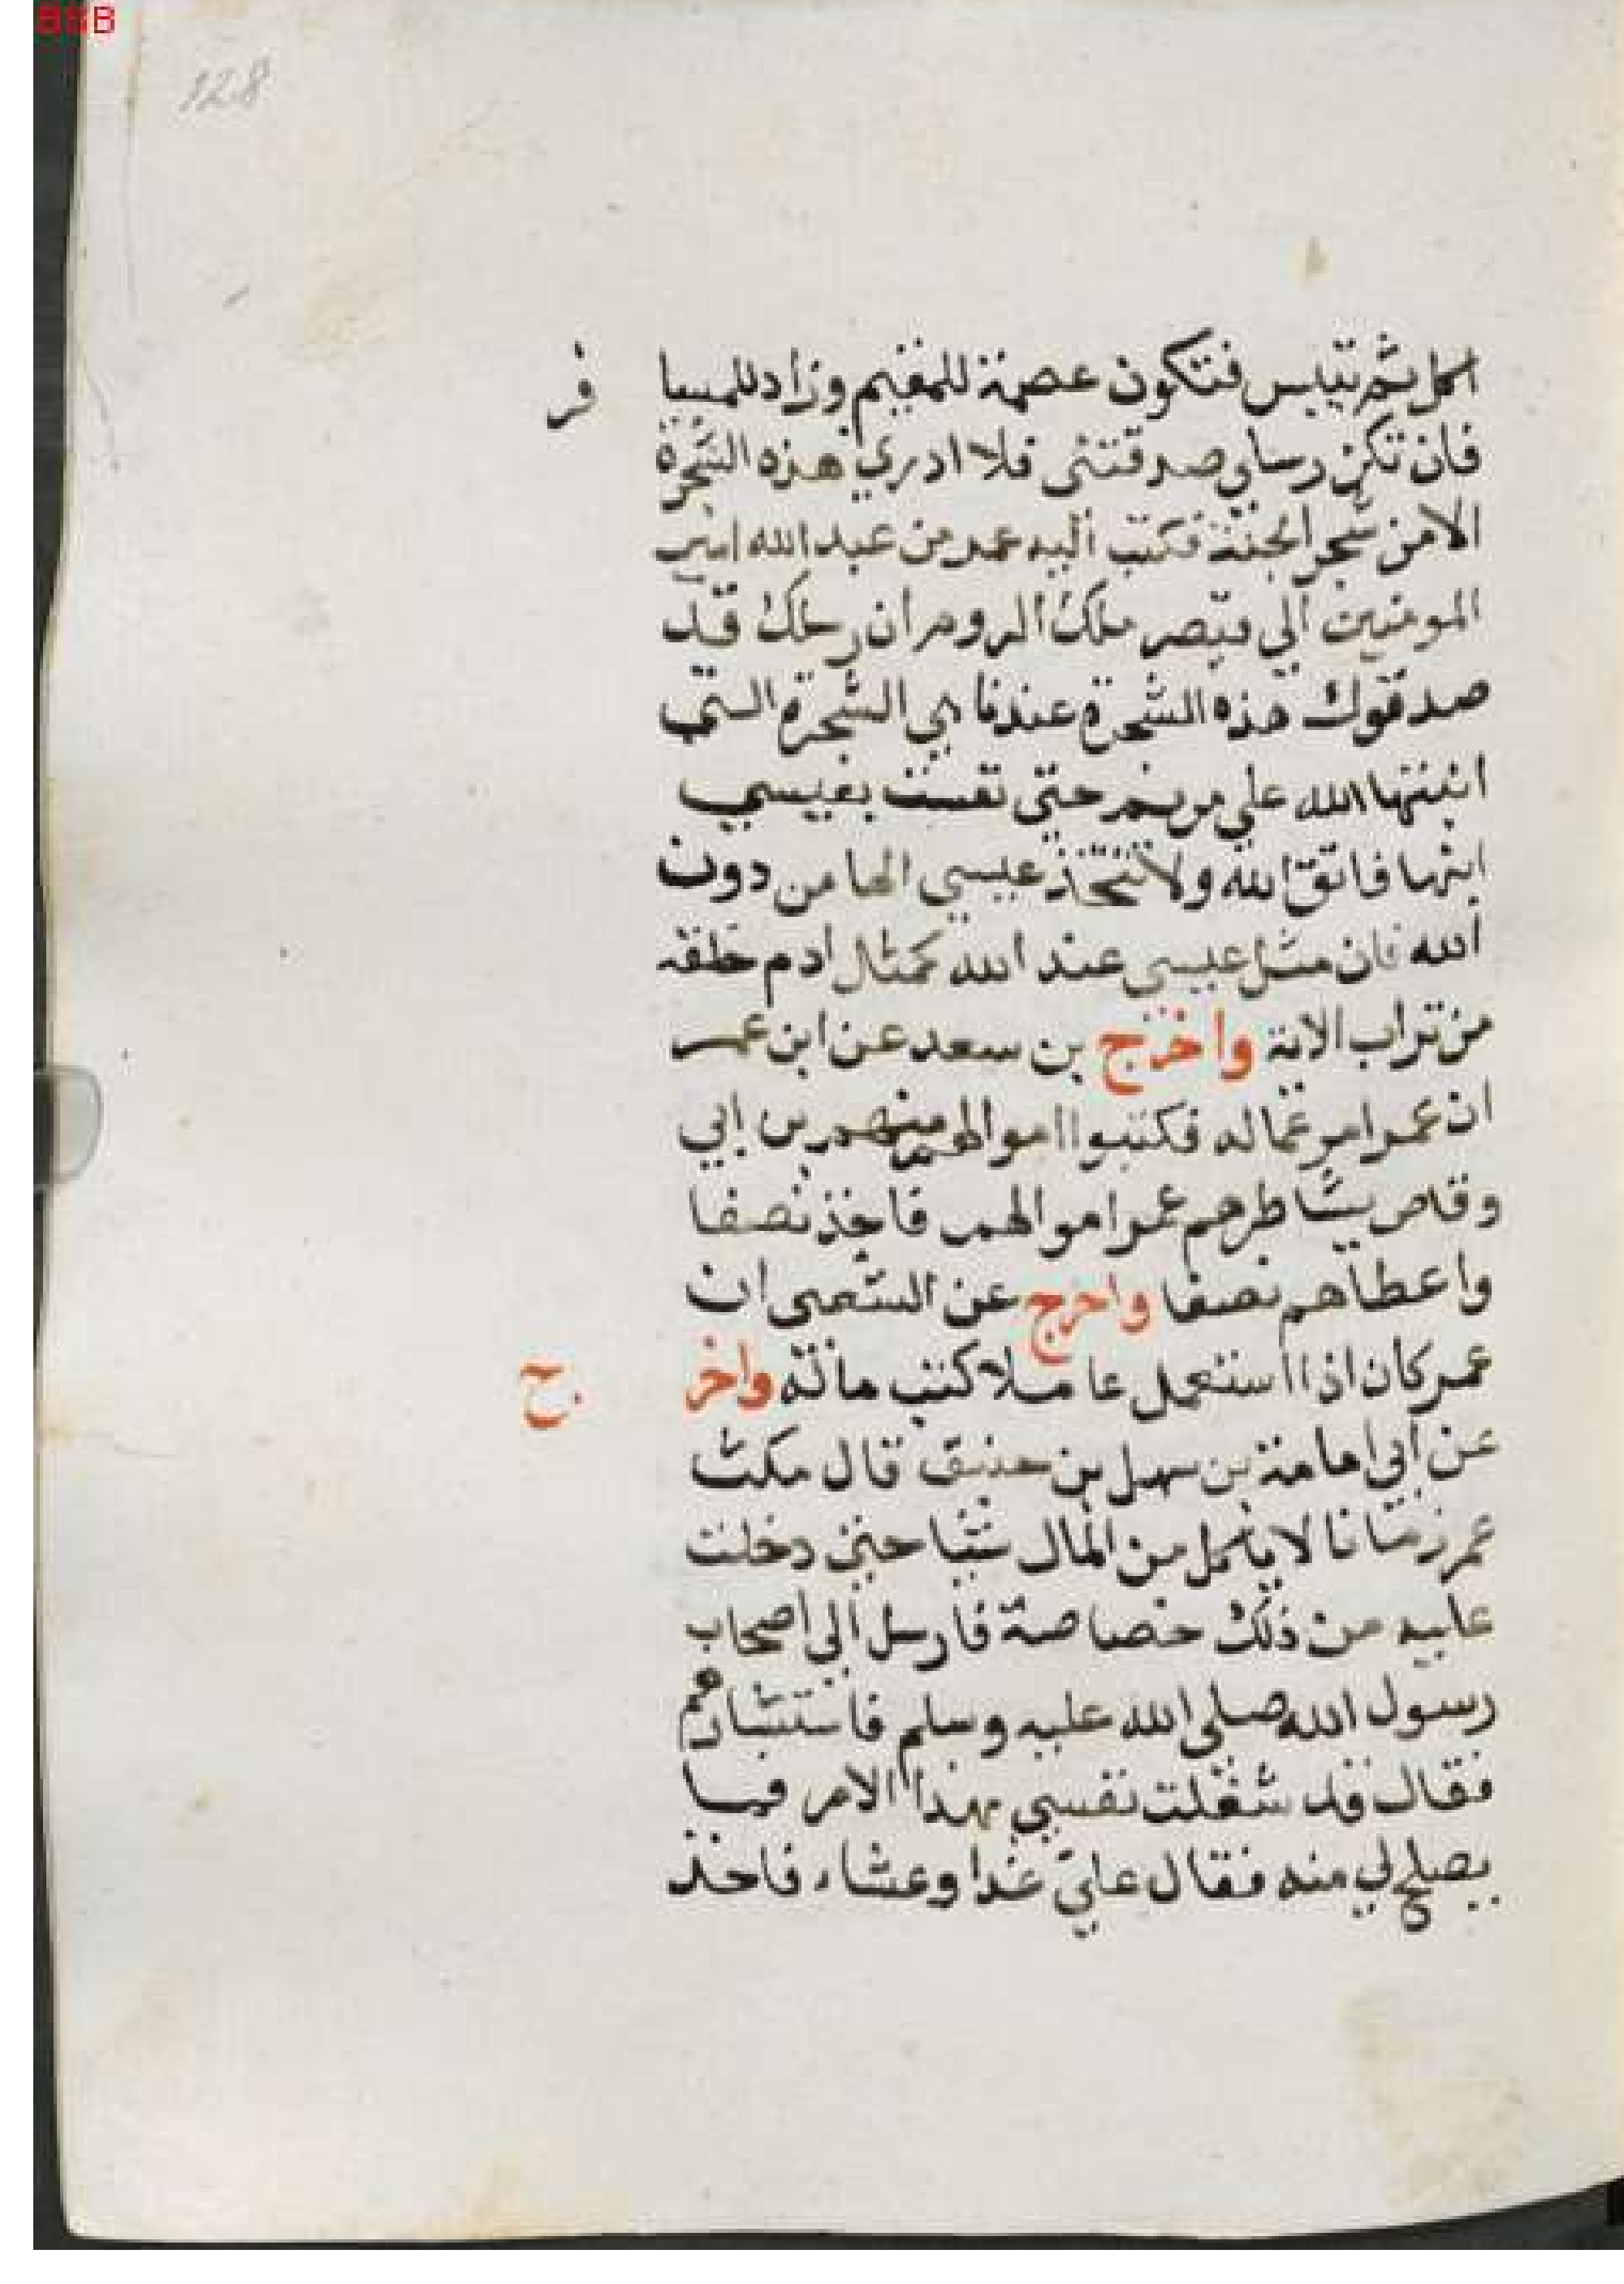 BSB
128
اكل ثم تيبس فتكون عصمة للمقيم وزاد للمسا فر
فان تكن رسلي صدقتنى فلا ادري هذه الشجرة
الا من شجر الجنة فكتب اليه عمر من عبد الله امير
المومنين الي قيصر ملك الروم ان رسلك قد
صدقوك هذه الشجرة عندنا هي الشجرة التي
انبتها الله علي مريم حتى نفست بعيسي
ابنها فاتق الله ولا تتخذ عيسي الها من دون
الله فان مثل عيسي عند الله كمثال ادم خلقه
من تراب الاية واخرج بن سعد عن ابن عمر
ان عمر امر عماله فكتبوا اموالهم منهم بن ابي
وقاص يشاطرهم عمر اموالهم فاخذ نصفا
واعطاهم نصفا واخرج عن الشعبى ان
عمر كان اذا استعمل عاملا كتب ماله واخر ج
عن ابي امامة بن سهل بن حنيف قال مكث
عمر زمانا لا ياكل من المال شيا حتى دخلت
عليه من ذلك خصاصة فارسل الي اصحاب
رسول الله صلى الله عليه وسلم فاستشارهم
فقال قد شغلت نفسي بهذا الامر فيما
يصلح لي منه فقال علي غدا وعشاء فاخذ